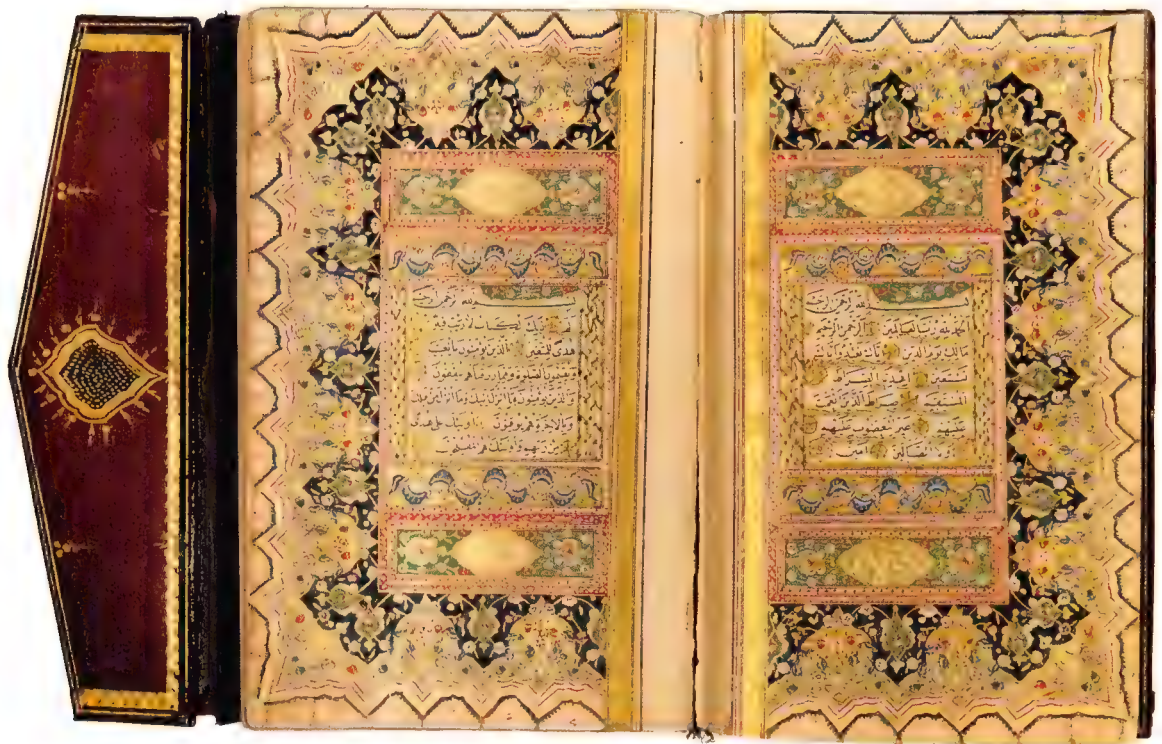 بسم الله الرحمن الرحيم
الحمد لله رب العالمين الرحمن الرحيم
مالك يوم الدين اياك نعبد واياك
نستعين اهدنا الصراط
المستقيم صراط الذين انعمت
عليهم غير المغضوب عليهم
ولا الضالين امين
بسم الله الرحمن الرحيم
الم ذلك الكتاب لا ريب فيه
هدى للمتقين الذين يؤمنون بالغيب
ويقيمون الصلوة ومما رزقناهم ينفقون
والذين يؤمنون بما انزل اليك وما انزل من قبلك
وبالاخرة هم يوقنون اولئك على هدى
من ربهم واولئك هم المفلحون